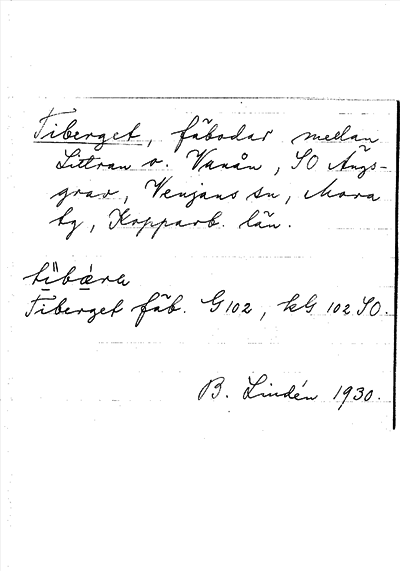 Tiberget, fäbodar mellan
Littran o. Vanån, SO Ängs-
grav, Venjans sn, Mora
tg, Kopparb. län.
Tiberget fäb. G 102, kG 102 SO.
B. Lindén 1930.